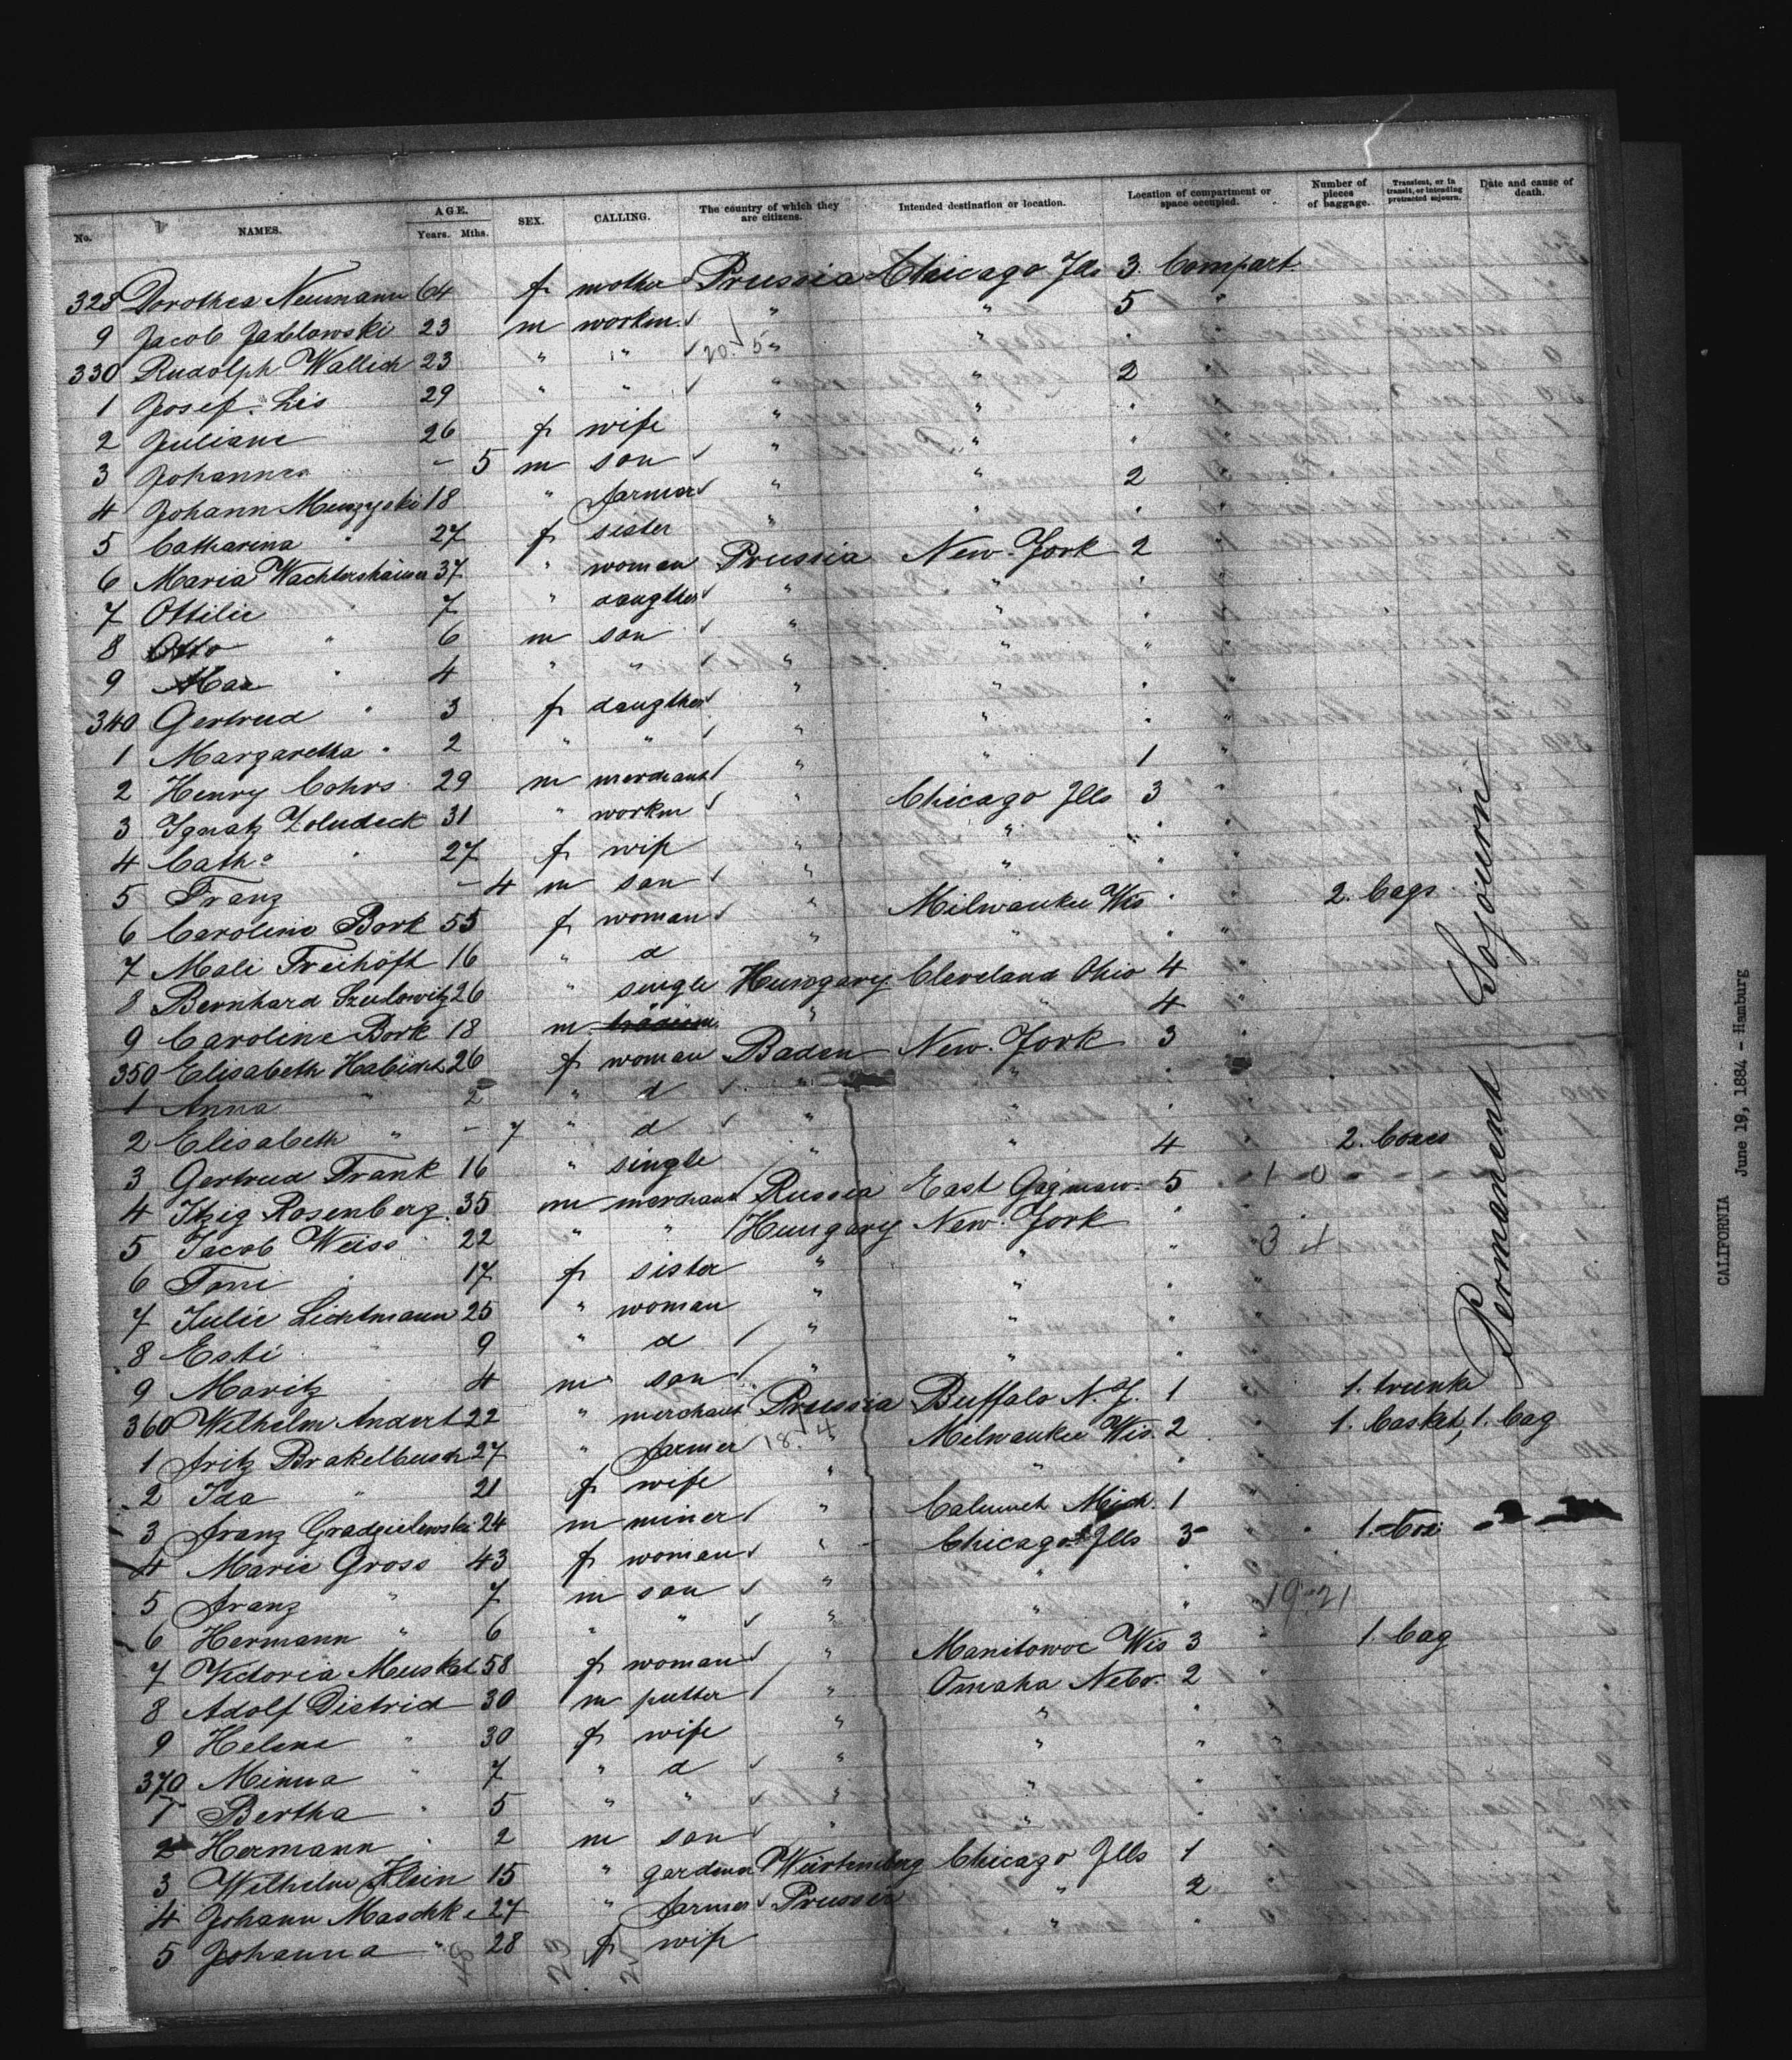 No. NAMES. AGE. Years. Mths. SEX. CALLING. The country of which they are citizens. Intended destination or location. Location of compartment or space occupied. Number of pieces of baggage. Transient, or in transit, or intending protracted sojourn. Date and cause of death.
328 Dorothea Neumann 64 f mother Prussia Chicago Ills 3. Compart.
9 Jacob Jablowski 23 m workm. " " 5 "
330 Rudolph Wallich 23 " " 20. 5 " " "
1 Josef Lis 29 " " " " 2 "
2 Juliane 26 f wife " " "
3 Johannes - 5 m son " " "
4 Johann Murzyski 18 " farmer " " 2
5 Catharina " 27 f sister " " "
6 Maria Wachtershäuser 37 " woman Prussia New-York 2 "
7 Ottilie 7 " daugther " " "
8 Otto " 6 m son " " "
9 Max " 4 " " " " "
340 Gertrud " 3 f daugther " " "
1 Margaretha " 2 " " " " "
2 Henry Cohrs 29 m merchant " " 1 "
3 Ignatz Zoludeck 31 " workm " Chicago Ills 3 "
4 Cath. " 27 f wife " " "
5 Franz - 4 m son " " "
6 Caroline Bork 55 f woman " Milwaukee Wis " 2. bags
7 Mali Freihöft 16 " d " " "
8 Bernhard Szulowitz 26 " single Hungary Cleveland Ohio 4 "
9 Caroline Bork 18 m " " 4
350 Elisabeth Habicht 26 f woman Baden New-York 3 "
1 Anna " 2 " d " " "
2 Elisabeth " - 7 " d " " "
3 Gertrud Frank 16 " single " " 4 2. boxes
4 Itzig Rosenberg 35 m merchant Russia East Gaginaw 5 " 1 0
5 Jacob Weiss 22 " " Hungary New-York "
6 Toni " 17 f sister " " " 3 4
7 Julie Lichtmann 25 " woman " " "
8 Esti 9 " d " " "
9 Moritz 4 m son " " "
360 Wilhelm Andert 22 " merchant Prussia Buffalo N.Y. 1 1. trunk
1 Fritz Brakelbusch 27 " farmer 18. 4 " Milwaukee Wis. 2 1. basket, 1. bag
2 Ida " 21 f wife " " "
3 Franz Gradzielewski 24 m miner " Calumet Mich. 1
4 Marie Gross 43 f woman " Chicago Ills 3 " 1. box
5 Franz " 7 m son " " "
6 Hermann " 6 " " " " " 19 21
7 Victoria Muskat 58 f woman " Manitowoc Wis 3 " 1. bag
8 Adolf Districh 30 m putter " Omaha Nebr. 2 "
9 Helene " 30 f wife " " "
370 Minna " 7 " d " " "
1 Bertha " 5 " " " " "
2 Hermann " 2 m son " " "
3 Wilhelm Klein 15 " gardener Würtemberg Chicago Ills 1 "
4 Johann Maschke 27 " farmer Prussia " 2 "
5 Johanna " 28 f wife " "
48 23 25
Permanent Sojourn
CALIFORNIA
June 19, 1884 - Hamburg